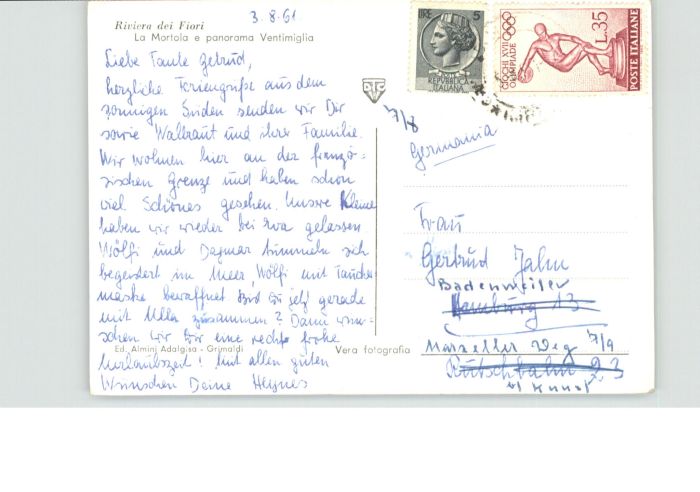 3.8.61
Riviera dei Fiori
La Mortola e panorama Ventimiglia
Liebe Tante Getrud,
herzliche Feriengrüße aus dem
sonnigen Süden senden wir Dir
sowie Waltraut und ihrer Familie.
Wir wohnen hier an der franzö-
sischen Grenze und haben schon
viel Schönes gesehen. Unsre Kleine
haben wir wieder bei gelassen
Wölfi und Dagmar tummeln sich
begeistert im Meer, Wölfi mit Taucher
maske bewaffnet. Bist Du jetzt gerade
mit Ulla zusammen? Dann wün-
schen wir Dir eine recht frohe
Ed. Almini Adalgisa - Grimaldi
Vera fotografia
Urlaubszeit! Mit allen guten
Wünschen Deine Heynes
LIRE 5
REPVBBLICA
ITALIANA
GIOCHI XVII OLIMPIADE
L.35
POSTE ITALIANE
7/8
Germania
Frau
Gertrud Jahn
Badenweiler
Hamburg 13
Marzeller Weg 7/9
Rutschbahn 23